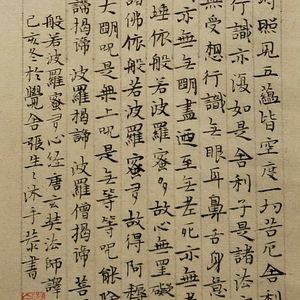 時照見五蘊皆空度一切苦厄舍利
行識亦復如是舍利子是諸法
無受想行識無眼耳鼻舌身意
亦無無明盡廼至無老死亦無
埵依般若波羅蜜多故心無罣礙
諸佛依般若波羅蜜多故得阿耨
大明呪是無上呪是無等等呪能除
諦揭諦 波羅揭諦 波羅僧揭諦 菩
般若波羅蜜多心經 唐玄奘法師譯
己亥冬於覺舍張生沐手恭書